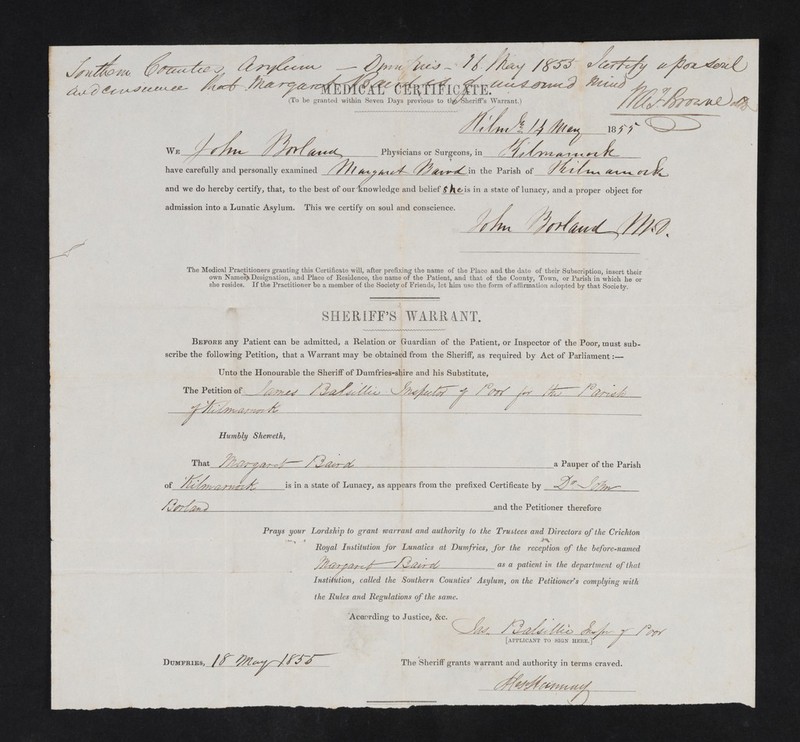 Southern Counties Asylum — Dumfries — 26 May 1855 I certify upon soul
and conscience that Margaret Baird is of unsound mind
W A F Browne
MEDICAL CERTIFICATE.
(To be granted within Seven Days previous to the Sheriff's Warrant.)
Kilmk 14 May 1855
WE John Borland Physicians or Surgeons, in Kilmarnock
have carefully and personally examined Margaret Baird in the Parish of Kilmarnock
and we do hereby certify, that, to the best of our knowledge and belief she is in a state of lunacy, and a proper object for
admission into a Lunatic Asylum. This we certify on soul and conscience.
John Borland M.D.
The Medical Practitioners granting this Certificate will, after prefixing the name of the Place and the date of their Subscription, insert their
own Names, Designation, and Place of Residence, the name of the Patient, and that of the County, Town, or Parish in which he or
she resides. If the Practitioner be a member of the Society of Friends, let him use the form of affirmation adopted by that Society.
SHERIFF'S WARRANT.
BEFORE any Patient can be admitted, a Relation or Guardian of the Patient, or Inspector of the Poor, must sub-
scribe the following Petition, that a Warrant may be obtained from the Sheriff, as required by Act of Parliament:—
Unto the Honourable the Sheriff of Dumfries-shire and his Substitute,
The Petition of James Balsillie Inspector of Poor for the Parish
of Kilmarnock
Humbly Sheweth,
That Margaret Baird a Pauper of the Parish
of Kilmarnock is in a state of Lunacy, as appears from the prefixed Certificate by Dr John
Borland and the Petitioner therefore
Prays your Lordship to grant warrant and authority to the Trustees and Directors of the Crichton
Royal Institution for Lunatics at Dumfries, for the reception of the before-named
Margaret Baird as a patient in the department of that
Institution, called the Southern Counties' Asylum, on the Petitioner's complying with
the Rules and Regulations of the same.
According to Justice, &c.
Jas. Balsillie Inspr of Poor
(APPLICANT TO SIGN HERE.)
DUMFRIES, 18 May 1855 The Sheriff grants warrant and authority in terms craved.